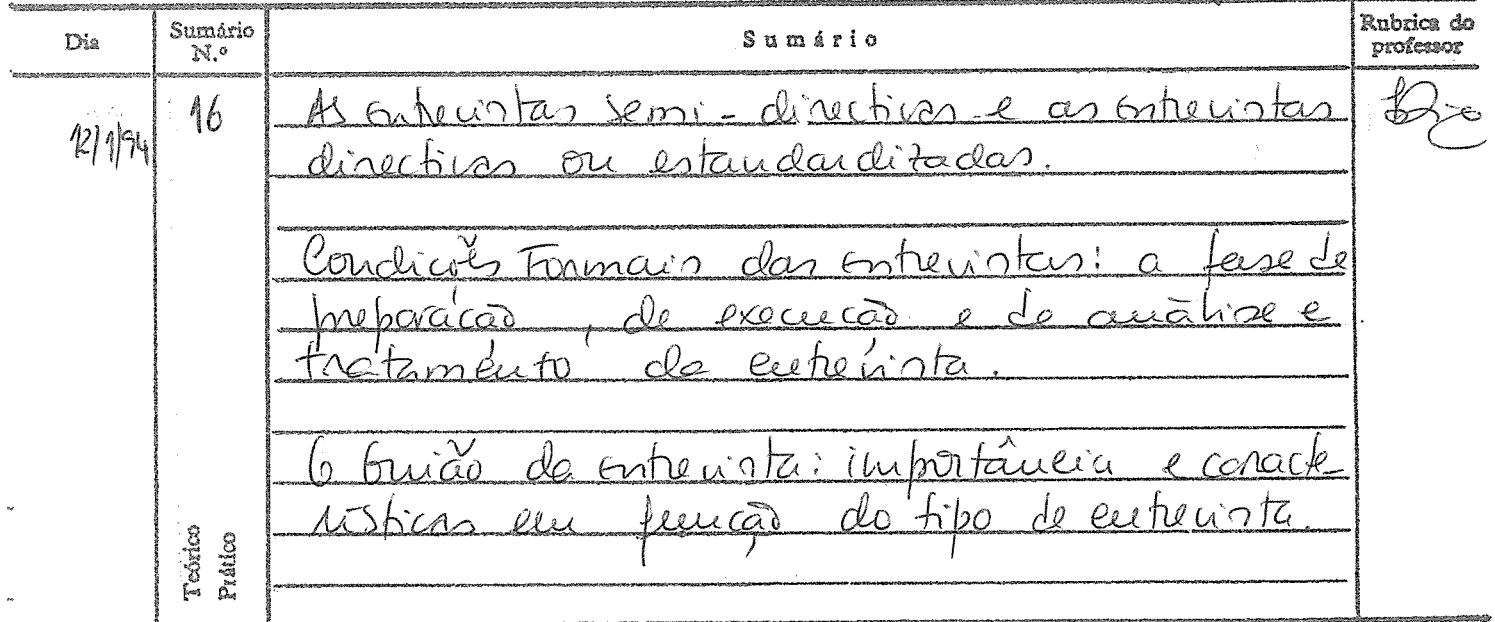 Dia
Sumário N.º
Sumário
Rubrica do professor
12/1/94
16
As entrevistas semi-directivas e as entrevistas
directivas ou estandarditadas.
Condições Formais das entrevistas: a fase de
preparação, de execução e de análise e
tratamento da entrevista.
O Guião da entrevista: importância e caracte-
rísticas em função do tipo de entrevista.
Teórico
Prático